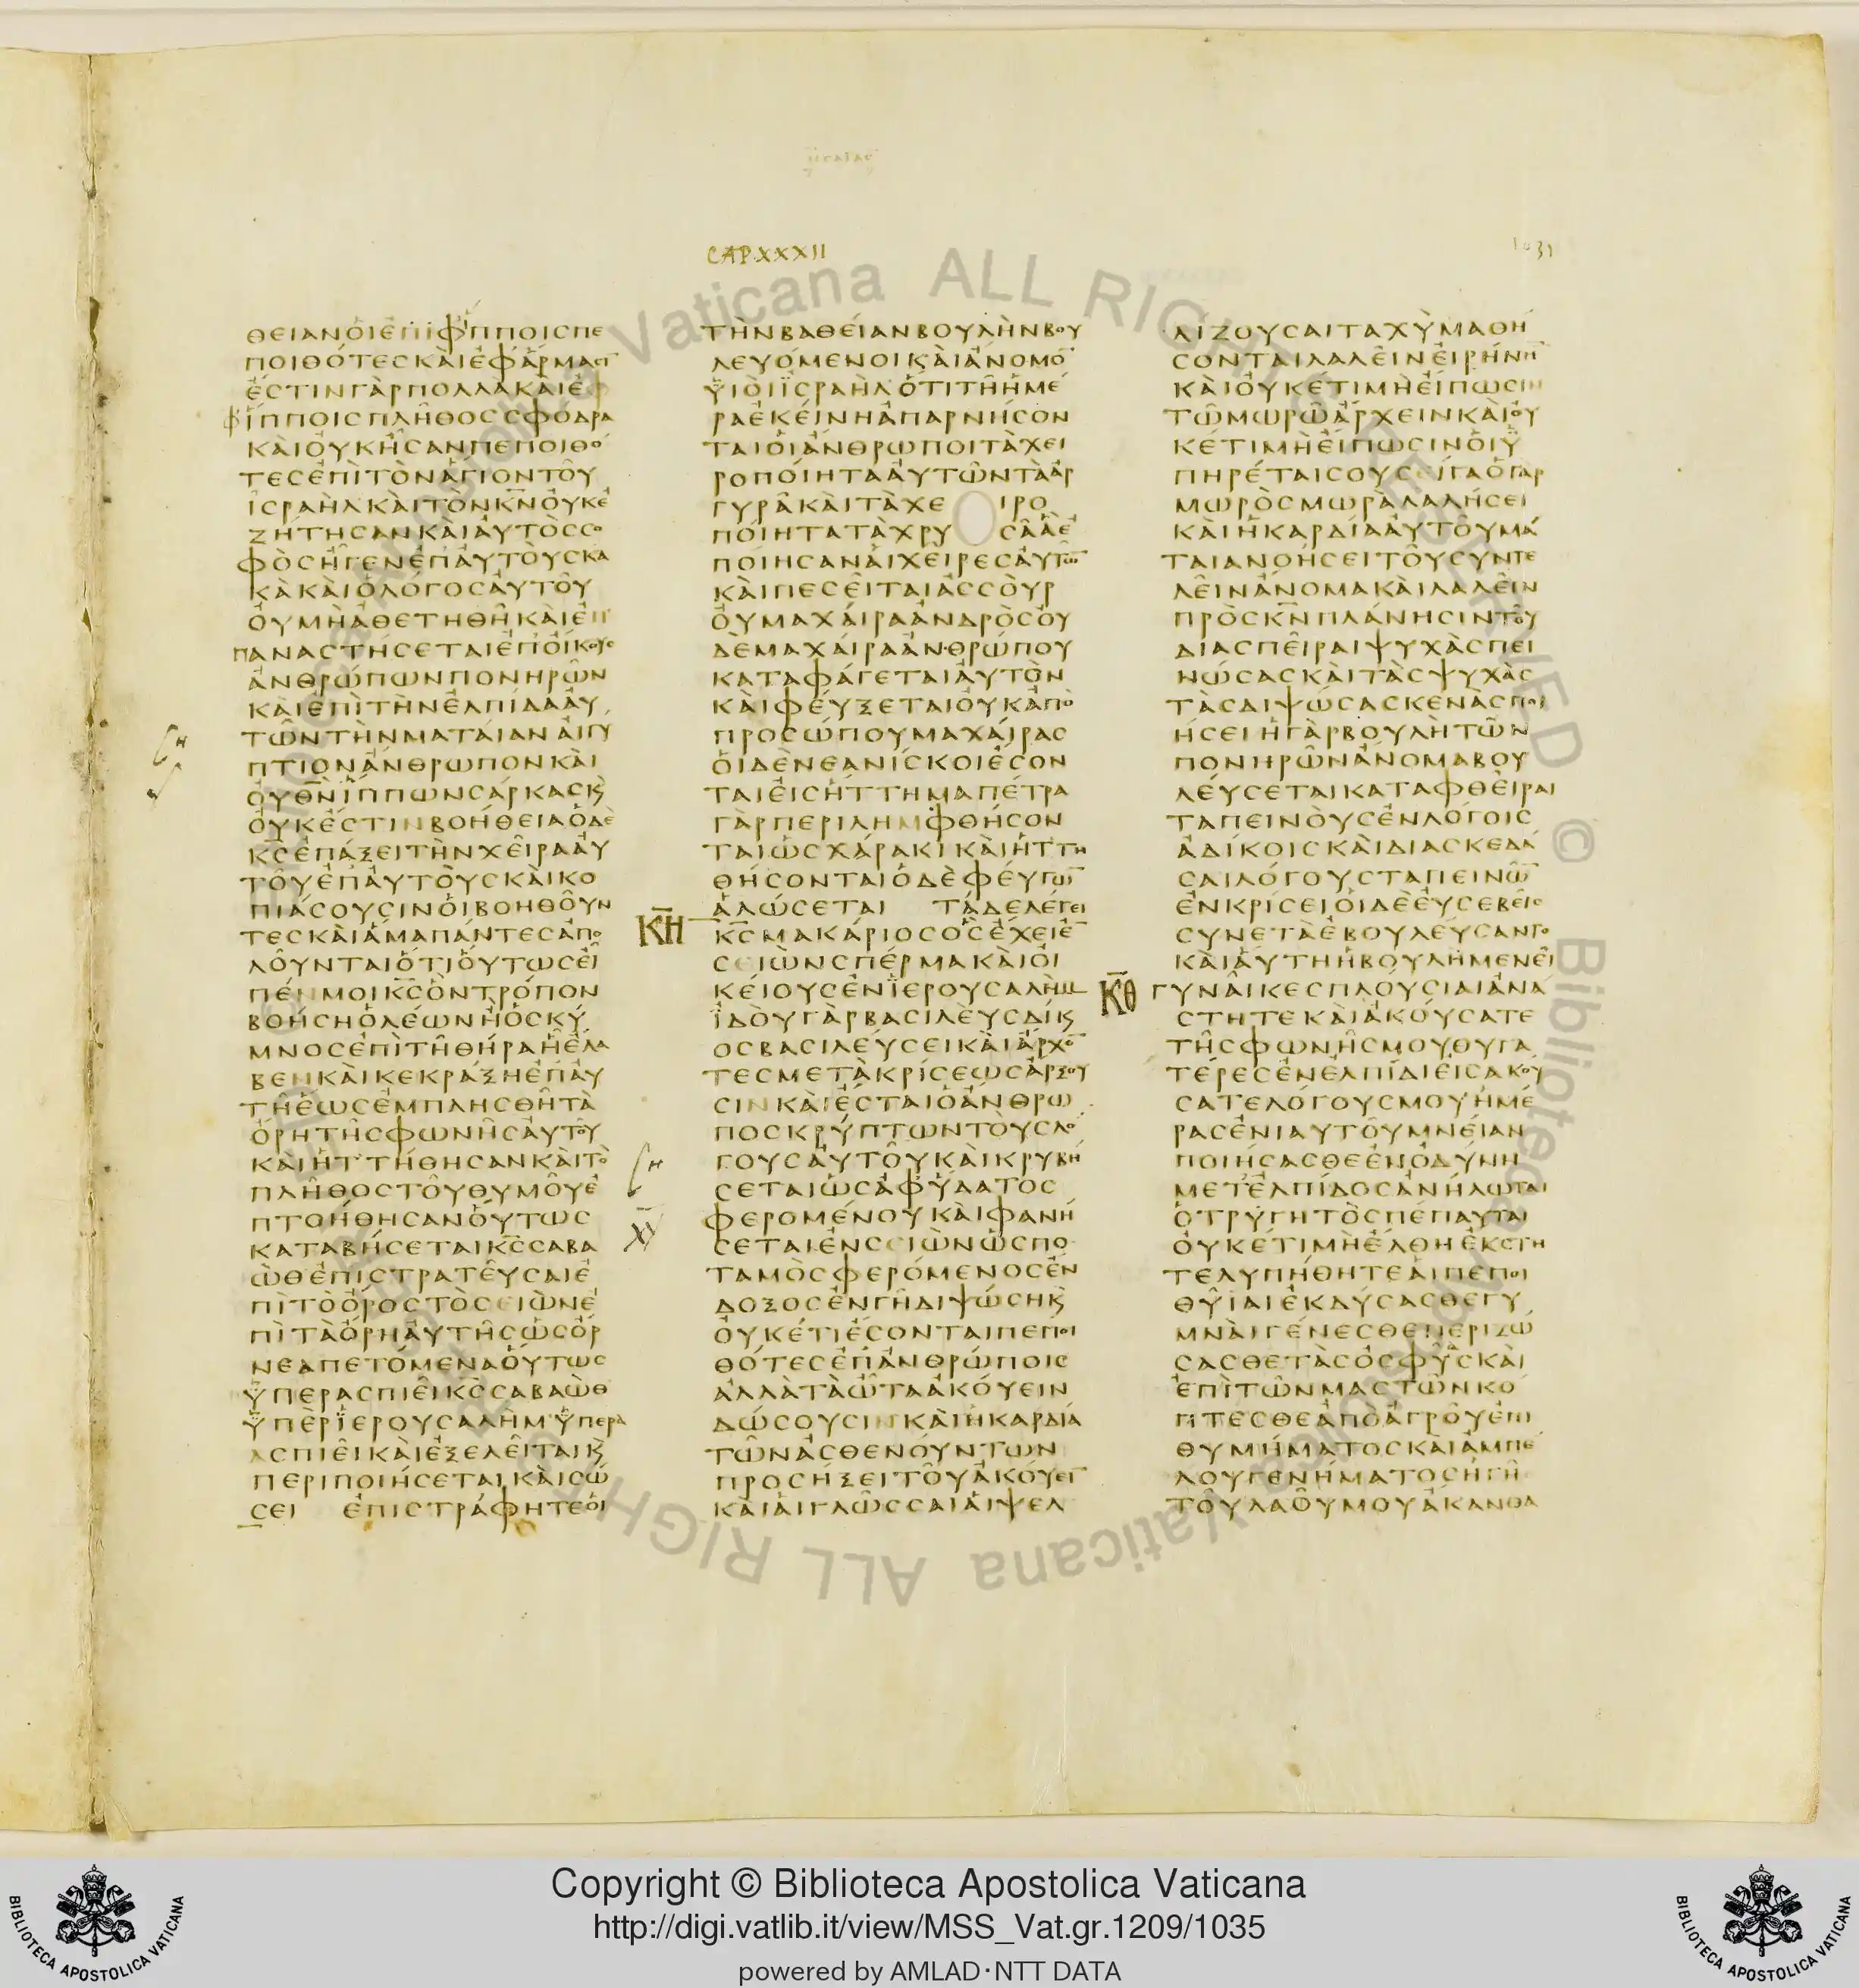 ησαιασ
CAP.XXXII
1031
ΘΕΙΑΝΟΙΕΠΙΦΙΠΠΟΙCΠΕ
ΠΟΙΘΟΤΕCΚΑΙΕΦΑΡΜΑCΙ
ΕCΤΙΝΓΑΡΠΟΛΛΑΚΑΙΕΦ
ΦΙΠΠΟΙCΠΛΗΘΟCCΦΟΔΡΑ
ΚΑΙΟΥΚΗCΑΝΠΕΠΟΙΘΟ
ΤΕCΕΠΙΤΟΝΑΓΙΟΝΤΟΥ
ΙCΡΑΗΛΚΑΙΤΟΝΚΝΟΥΚΕ
ΖΗΤΗCΑΝΚΑΙΑΥΤΟCCΟ
ΦΟCΗΓΕΝΕΠΑΥΤΟΥCΚΑ
ΚΑΚΑΙΟΛΟΓΟCΑΥΤΟΥ
ΟΥΜΗΑΘΕΤΗΘΗΚΑΙΕΠ
ΠΑΝΑCΤΗCΕΤΑΙΕΠΟΙΚΟΥC
ΑΝΘΡΩΠΩΝΠΟΝΗΡΩΝ
ΚΑΙΕΠΙΤΗΝΕΛΠΙΔΑΑΥ
ΤΩΝΤΗΝΜΑΤΑΙΑΝΑΙΓΥ
ΠΤΙΟΝΑΝΘΡΩΠΟΝΚΑΙ
ΟΥΘΝΙΠΠΩΝCΑΡΚΑCΚ
ΟΥΚΕCΤΙΝΒΟΗΘΕΙΑΟΔΕ
ΚCΕΠΑΞΕΙΤΗΝΧΕΙΡΑΑΥ
ΤΟΥΕΠΑΥΤΟΥCΚΑΙΚΟ
ΠΙΑCΟΥCΙΝΟΙΒΟΗΘΟΥΝ
ΤΕCΚΑΙΑΜΑΠΑΝΤΕCΑΠΟ
ΛΟΥΝΤΑΙΟΤΙΟΥΤΩCΕΙ
ΠΕΝΜΟΙΚCΟΝΤΡΟΠΟΝ
ΒΟΗCΗΟΛΕΩΝΗΟCΚΥ
ΜΝΟCΕΠΙΤΗΘΗΡΑΗΕΛΑ
ΒΕΝΚΑΙΚΕΚΡΑΞΗΕΠΑΥ
ΤΗΕΩCΕΜΠΛΗCΘΗΤΑ
ΟΡΗΤΗCΦΩΝΗCΑΥΤΟΥ
ΚΑΙΗΤΤΗΘΗCΑΝΚΑΙΤΟ
ΠΛΗΘΟCΤΟΥΘΥΜΟΥΕ
ΠΤΟΗΘΗCΑΝΟΥΤΩC
ΚΑΤΑΒΗCΕΤΑΙΚCCΑΒΑ
ΩΘΕΠΙCΤΡΑΤΕΥCΑΙΕ
ΠΙΤΟΟΡΟCΤΟCΕΙΩΝΕ
ΠΙΤΑΟΡΗΑΥΤΗCΩCΟΡ
ΝΕΑΠΕΤΟΜΕΝΑΟΥΤΩC
ΥΠΕΡΑCΠΙΕΙΚCCΑΒΑΩΘ
ΥΠΕΡΙΕΡΟΥCΑΛΗΜΥΠΕΡΑ
ΑCΠΙΕΙΚΑΙΕΞΕΛΕΙΤΑΙΚ
ΠΕΡΙΠΟΙΗCΕΤΑΙΚΑΙCΩ
CΕΙ ΕΠΙCΤΡΑΦΗΤΕΟΙ
ΤΗΝΒΑΘΕΙΑΝΒΟΥΛΗΝΒΟΥ
ΛΕΥΟΜΕΝΟΙΚΑΙΑΝΟΜΟ
ΥΙΟΙΙCΡΑΗΛΟΤΙΤΗΗΜΕ
ΡΑΕΚΕΙΝΗΑΠΑΡΝΗCΟΝ
ΤΑΙΟΙΑΝΘΡΩΠΟΙΤΑΧΕΙ
ΡΟΠΟΙΗΤΑΑΥΤΩΝΤΑΑΡ
ΓΥΡΑΚΑΙΤΑΧΕ ΙΡΟ
ΠΟΙΗΤΑΤΑΧΡΥ CΑΑΕ
ΠΟΙΗCΑΝΑΙΧΕΙΡΕCΑΥΤΩ
ΚΑΙΠΕCΕΙΤΑΙΑCCΟΥΡ
ΟΥΜΑΧΑΙΡΑΑΝΔΡΟCΟΥ
ΔΕΜΑΧΑΙΡΑΑΝΘΡΩΠΟΥ
ΚΑΤΑΦΑΓΕΤΑΙΑΥΤΟΝ
ΚΑΙΦΕΥΞΕΤΑΙΟΥΚΑΠΟ
ΠΡΟCΩΠΟΥΜΑΧΑΙΡΑC
ΟΙΔΕΝΕΑΝΙCΚΟΙΕCΟΝ
ΤΑΙΕΙCΗΤΤΗΜΑΠΕΤΡΑ
ΓΑΡΠΕΡΙΛΗΜΦΘΗCΟΝ
ΤΑΙΩCΧΑΡΑΚΙΚΑΙΗΤΤΗ
ΘΗCΟΝΤΑΙΟΔΕΦΕΥΓΩ
ΑΛΩCΕΤΑΙ ΤΑΔΕΛΕΓΕΙ
ΚΗ ΚCΜΑΚΑΡΙΟCΟCΕΧΕΙΕ
CΕΙΩΝCΠΕΡΜΑΚΑΙΟΙ
ΚΕΙΟΥCΕΝΙΕΡΟΥCΑΛΗΜ
ΙΔΟΥΓΑΡΒΑCΙΛΕΥCΔΙΚ
ΟCΒΑCΙΛΕΥCΕΙΚΑΙΑΡΧΟ
ΤΕCΜΕΤΑΚΡΙCΕΩCΑΡΞΟΥ
CΙΝΚΑΙΕCΤΑΙΟΑΝΘΡΩ
ΠΟCΚΡΥΠΤΩΝΤΟΥCΛΟ
ΓΟΥCΑΥΤΟΥΚΑΙΚΡΥΒΗ
CΕΤΑΙΩCΑΦΥΔΑΤΟC
ΦΕΡΟΜΕΝΟΥΚΑΙΦΑΝΗ
CΕΤΑΙΕΝCΕΙΩΝΩCΠΟ
ΤΑΜΟCΦΕΡΟΜΕΝΟCΕΝ
ΔΟΞΟCΕΝΓΗΔΙΨΩCΗΚ
ΟΥΚΕΤΙΕCΟΝΤΑΙΠΕΠΟΙ
ΘΟΤΕCΕΠΑΝΘΡΩΠΟΙC
ΑΛΛΑΤΑΩΤΑΑΚΟΥΕΙΝ
ΔΩCΟΥCΙΝΚΑΙΗΚΑΡΔΙΑ
ΤΩΝΑCΘΕΝΟΥΝΤΩΝ
ΠΡΟCΗΞΕΙΤΟΥΑΚΟΥΕΙ
ΚΑΙΑΙΓΛΩCCΑΙΑΙΨΕΛ
ΛΙΖΟΥCΑΙΤΑΧΥΜΑΘΗ
CΟΝΤΑΙΛΑΛΕΙΝΕΙΡΗΝΗ
ΚΑΙΟΥΚΕΤΙΜΗΕΙΠΩCΙΝ
ΤΩΜΩΡΩΑΡΧΕΙΝΚΑΙΟΥ
ΚΕΤΙΜΗΕΙΠΩCΙΝΟΙΥ
ΠΗΡΕΤΑΙCΟΥCΕΙΓΑΟΓΑΡ
ΜΩΡΟCΜΩΡΑΛΑΛΗCΕΙ
ΚΑΙΗΚΑΡΔΙΑΑΥΤΟΥΜΑ
ΤΑΙΑΝΟΗCΕΙΤΟΥCΥΝΤΕ
ΛΕΙΝΑΝΟΜΑΚΑΙΛΑΛΕΙΝ
ΠΡΟCΚΝΠΛΑΝΗCΙΝΤΟΥ
ΔΙΑCΠΕΙΡΑΙΨΥΧΑCΠΕΙ
ΝΩCΑCΚΑΙΤΑCΨΥΧΑC
ΤΑCΔΙΨΩCΑCΚΕΝΑCΠΟΙ
ΗCΕΙΗΓΑΡΒΟΥΛΗΤΩΝ
ΠΟΝΗΡΩΝΑΝΟΜΑΒΟΥ
ΛΕΥCΕΤΑΙΚΑΤΑΦΘΕΙΡΑΙ
ΤΑΠΕΙΝΟΥCΕΝΛΟΓΟΙC
ΑΔΙΚΟΙCΚΑΙΔΙΑCΚΕΔΑ
CΑΙΛΟΓΟΥCΤΑΠΕΙΝΩ
ΕΝΚΡΙCΕΙΟΙΔΕΕΥCΕΒΕΙC
CΥΝΕΤΑΕΒΟΥΛΕΥCΑΝΤΟ
ΚΑΙΑΥΤΗΗΒΟΥΛΗΜΕΝΕΙ
ΚΘ ΓΥΝΑΙΚΕCΠΛΟΥCΙΑΙΑΝΑ
CΤΗΤΕΚΑΙΑΚΟΥCΑΤΕ
ΤΗCΦΩΝΗCΜΟΥΘΥΓΑ
ΤΕΡΕCΕΝΕΛΠΙΔΙΕΙCΑΚΟΥ
CΑΤΕΛΟΓΟΥCΜΟΥΗΜΕ
ΡΑCΕΝΙΑΥΤΟΥΜΝΕΙΑΝ
ΠΟΙΗCΑCΘΕΕΝΟΔΥΝΗ
ΜΕΤΕΛΠΙΔΟCΑΝΗΛΩΤΑΙ
ΟΤΡΥΓΗΤΟCΠΕΠΑΥΤΑΙ
ΟΥΚΕΤΙΜΗΕΛΘΗΕΚCΤΗ
ΤΕΛΥΠΗΘΗΤΕΑΙΠΕΠΟΙ
ΘΥΙΑΙΕΚΔΥCΑCΘΕΓΥ
ΜΝΑΙΓΕΝΕCΘΕΠΕΡΙΖΩ
CΑCΘΕΤΑCΟCΦΥΑCΚΑΙ
ΕΠΙΤΩΝΜΑCΤΩΝΚΟ
ΠΤΕCΘΕΑΠΟΑΓΡΟΥΕΠΙ
ΘΥΜΗΜΑΤΟCΚΑΙΑΜΠΕ
ΛΟΥΓΕΝΗΜΑΤΟCΗΓΗ
ΤΟΥΛΑΟΥΜΟΥΑΚΑΝΘΑ
Vaticana ALL RIGHTS RESERVED © Biblioteca Vaticana ALL RIGHTS
Copyright © Biblioteca Apostolica Vaticana
http://digi.vatlib.it/view/MSS_Vat.gr.1209/1035
powered by AMLAD·NTT DATA
BIBLIOTECA APOSTOLICA VATICANA
BIBLIOTECA APOSTOLICA VATICANA